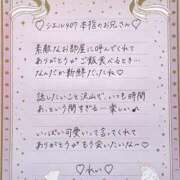 ♡シエル407 本指のお兄さん♡
素敵なお部屋に呼んでくれて
ありがとう♡ ご飯食べるとき…
なんだか新鮮だったね♡
話したいこと沢山で、いつも時間
あっという間すぎる… 楽しい
いっぱい可愛いって言ってくれて
ありがとう♡ もう会いたいな〜♡
♡れい♡